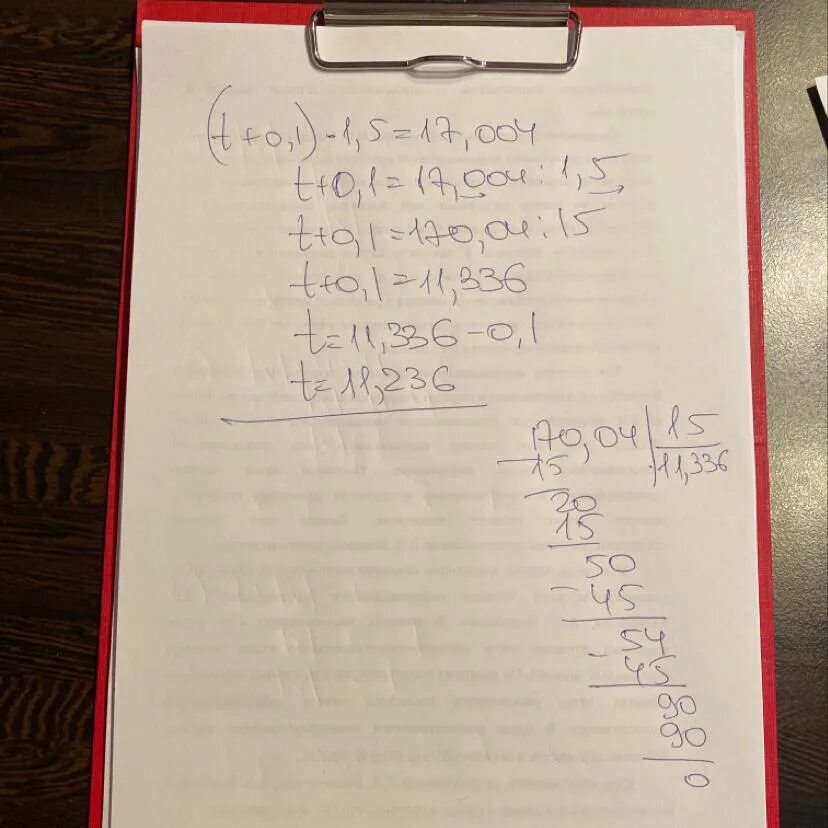 (t+0,1)·1,5=17,004
t+0,1=17,004:1,5
t+0,1=170,04:15
t+0,1=11,336
t=11,336-0,1
t=11,236
170,04|15
-15 |11,336
-20
15
50
-45
54
-45
90
90
0